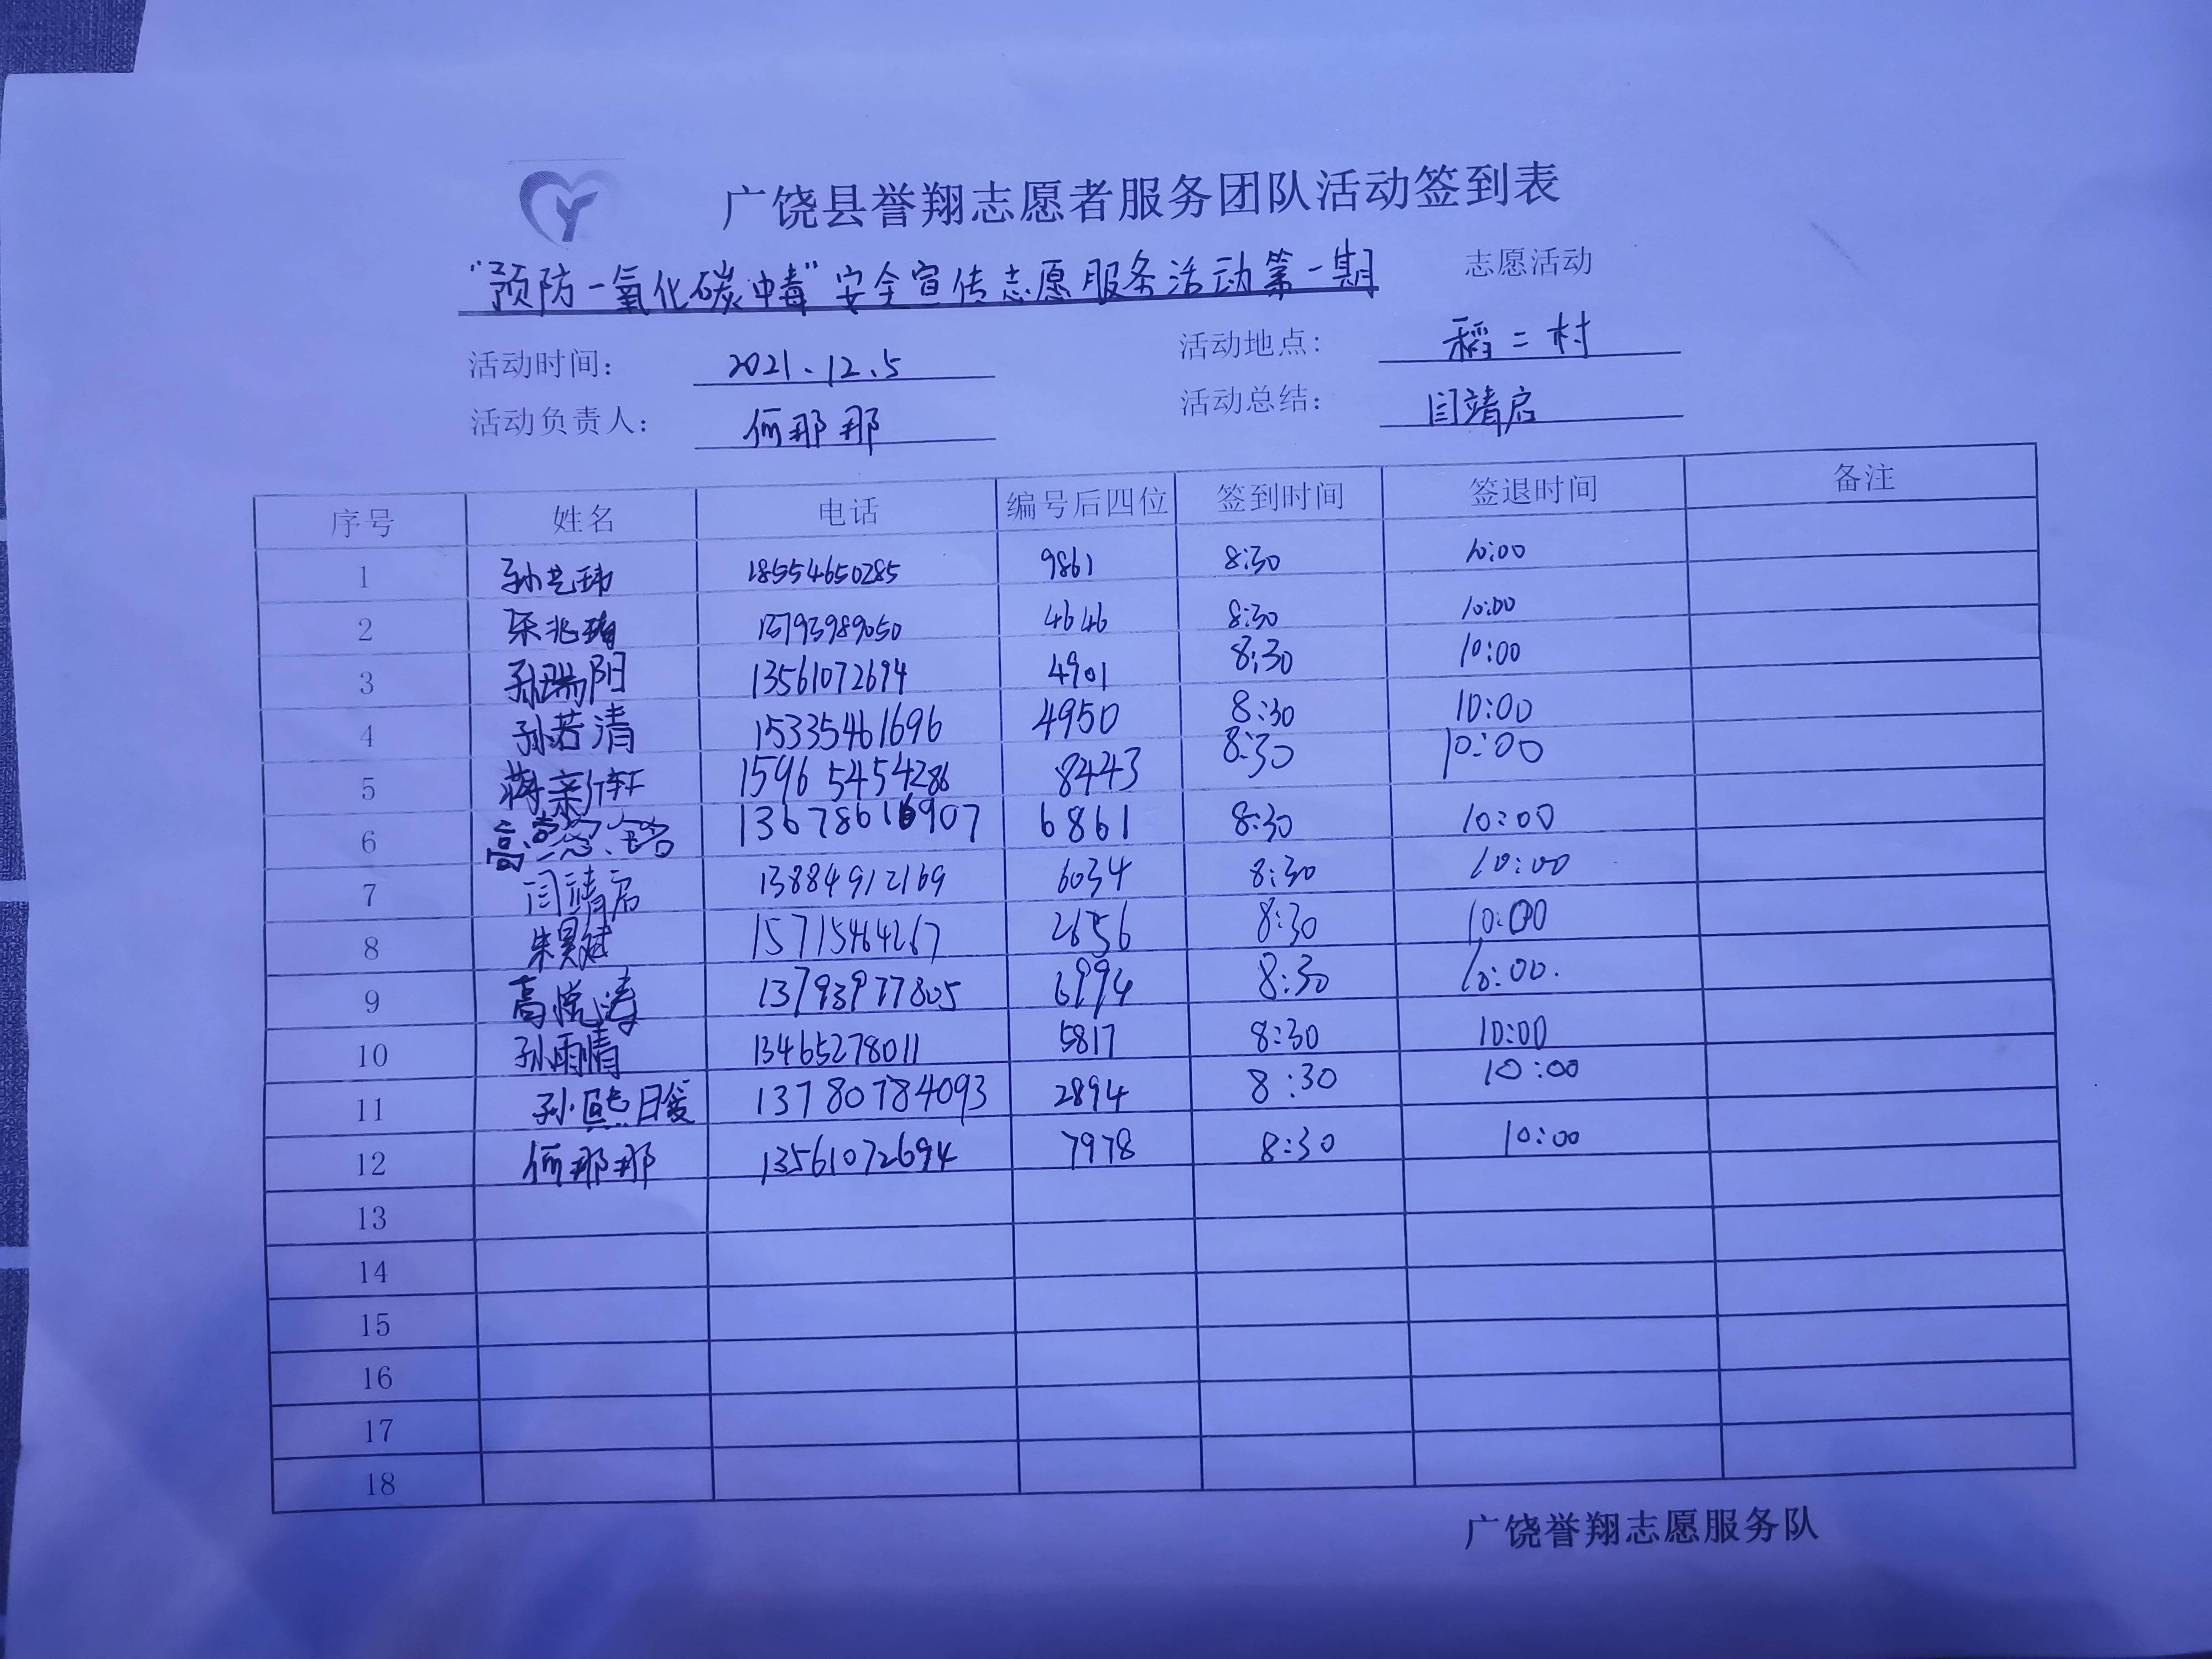 广饶县誉翔志愿者服务团队活动签到表
“预防一氧化碳中毒”安全宣传志愿服务活动第一期 志愿活动
活动时间： 2021.12.5 活动地点： 稻二村
活动负责人： 何那那 活动总结： 闫靖启
序号 姓名 电话 编号后四位 签到时间 签退时间 备注
1 孙艺玮 18554650285 9861 8:30 10:00
2 13793989050 4646 8:30 10:00
3 孙瑞阳 13561072694 4901 8:30 10:00
4 孙若清 15335461696 4950 8:30 10:00
5 蒋亲轩 15965454286 8443 8:30 10:00
6 6861 8:30 10:00
7 闫靖启 13884912169 6034 8:30 10:00
8 朱昊斌 15715464267 2656 8:30 10:00
9 高悦涛 13793977805 6994 8:30 10:00.
10 孙雨情 13465278011 5817 8:30 10:00
11 孙熙暖 13780784093 2894 8:30 10:00
12 何那那 13561072694 7978 8:30 10:00
13
14
15
16
17
18
广饶誉翔志愿服务队